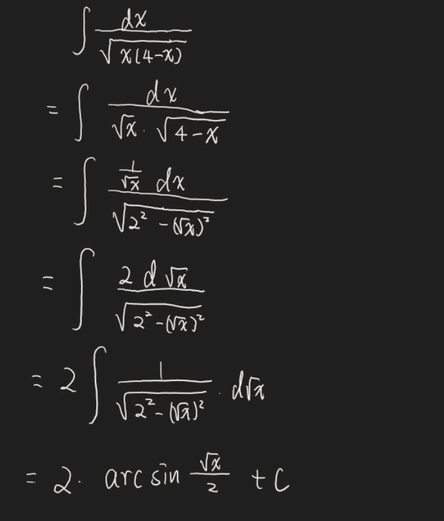 ∫ dx / √(x(4-x))
= ∫ dx / (√x · √(4-x))
= ∫ (1/√x) dx / √(2² - (√x)²)
= ∫ 2 d√x / √(2² - (√x)²)
= 2 ∫ 1 / √(2² - (√x)²) · d√x
= 2 · arcsin √x/2 + C